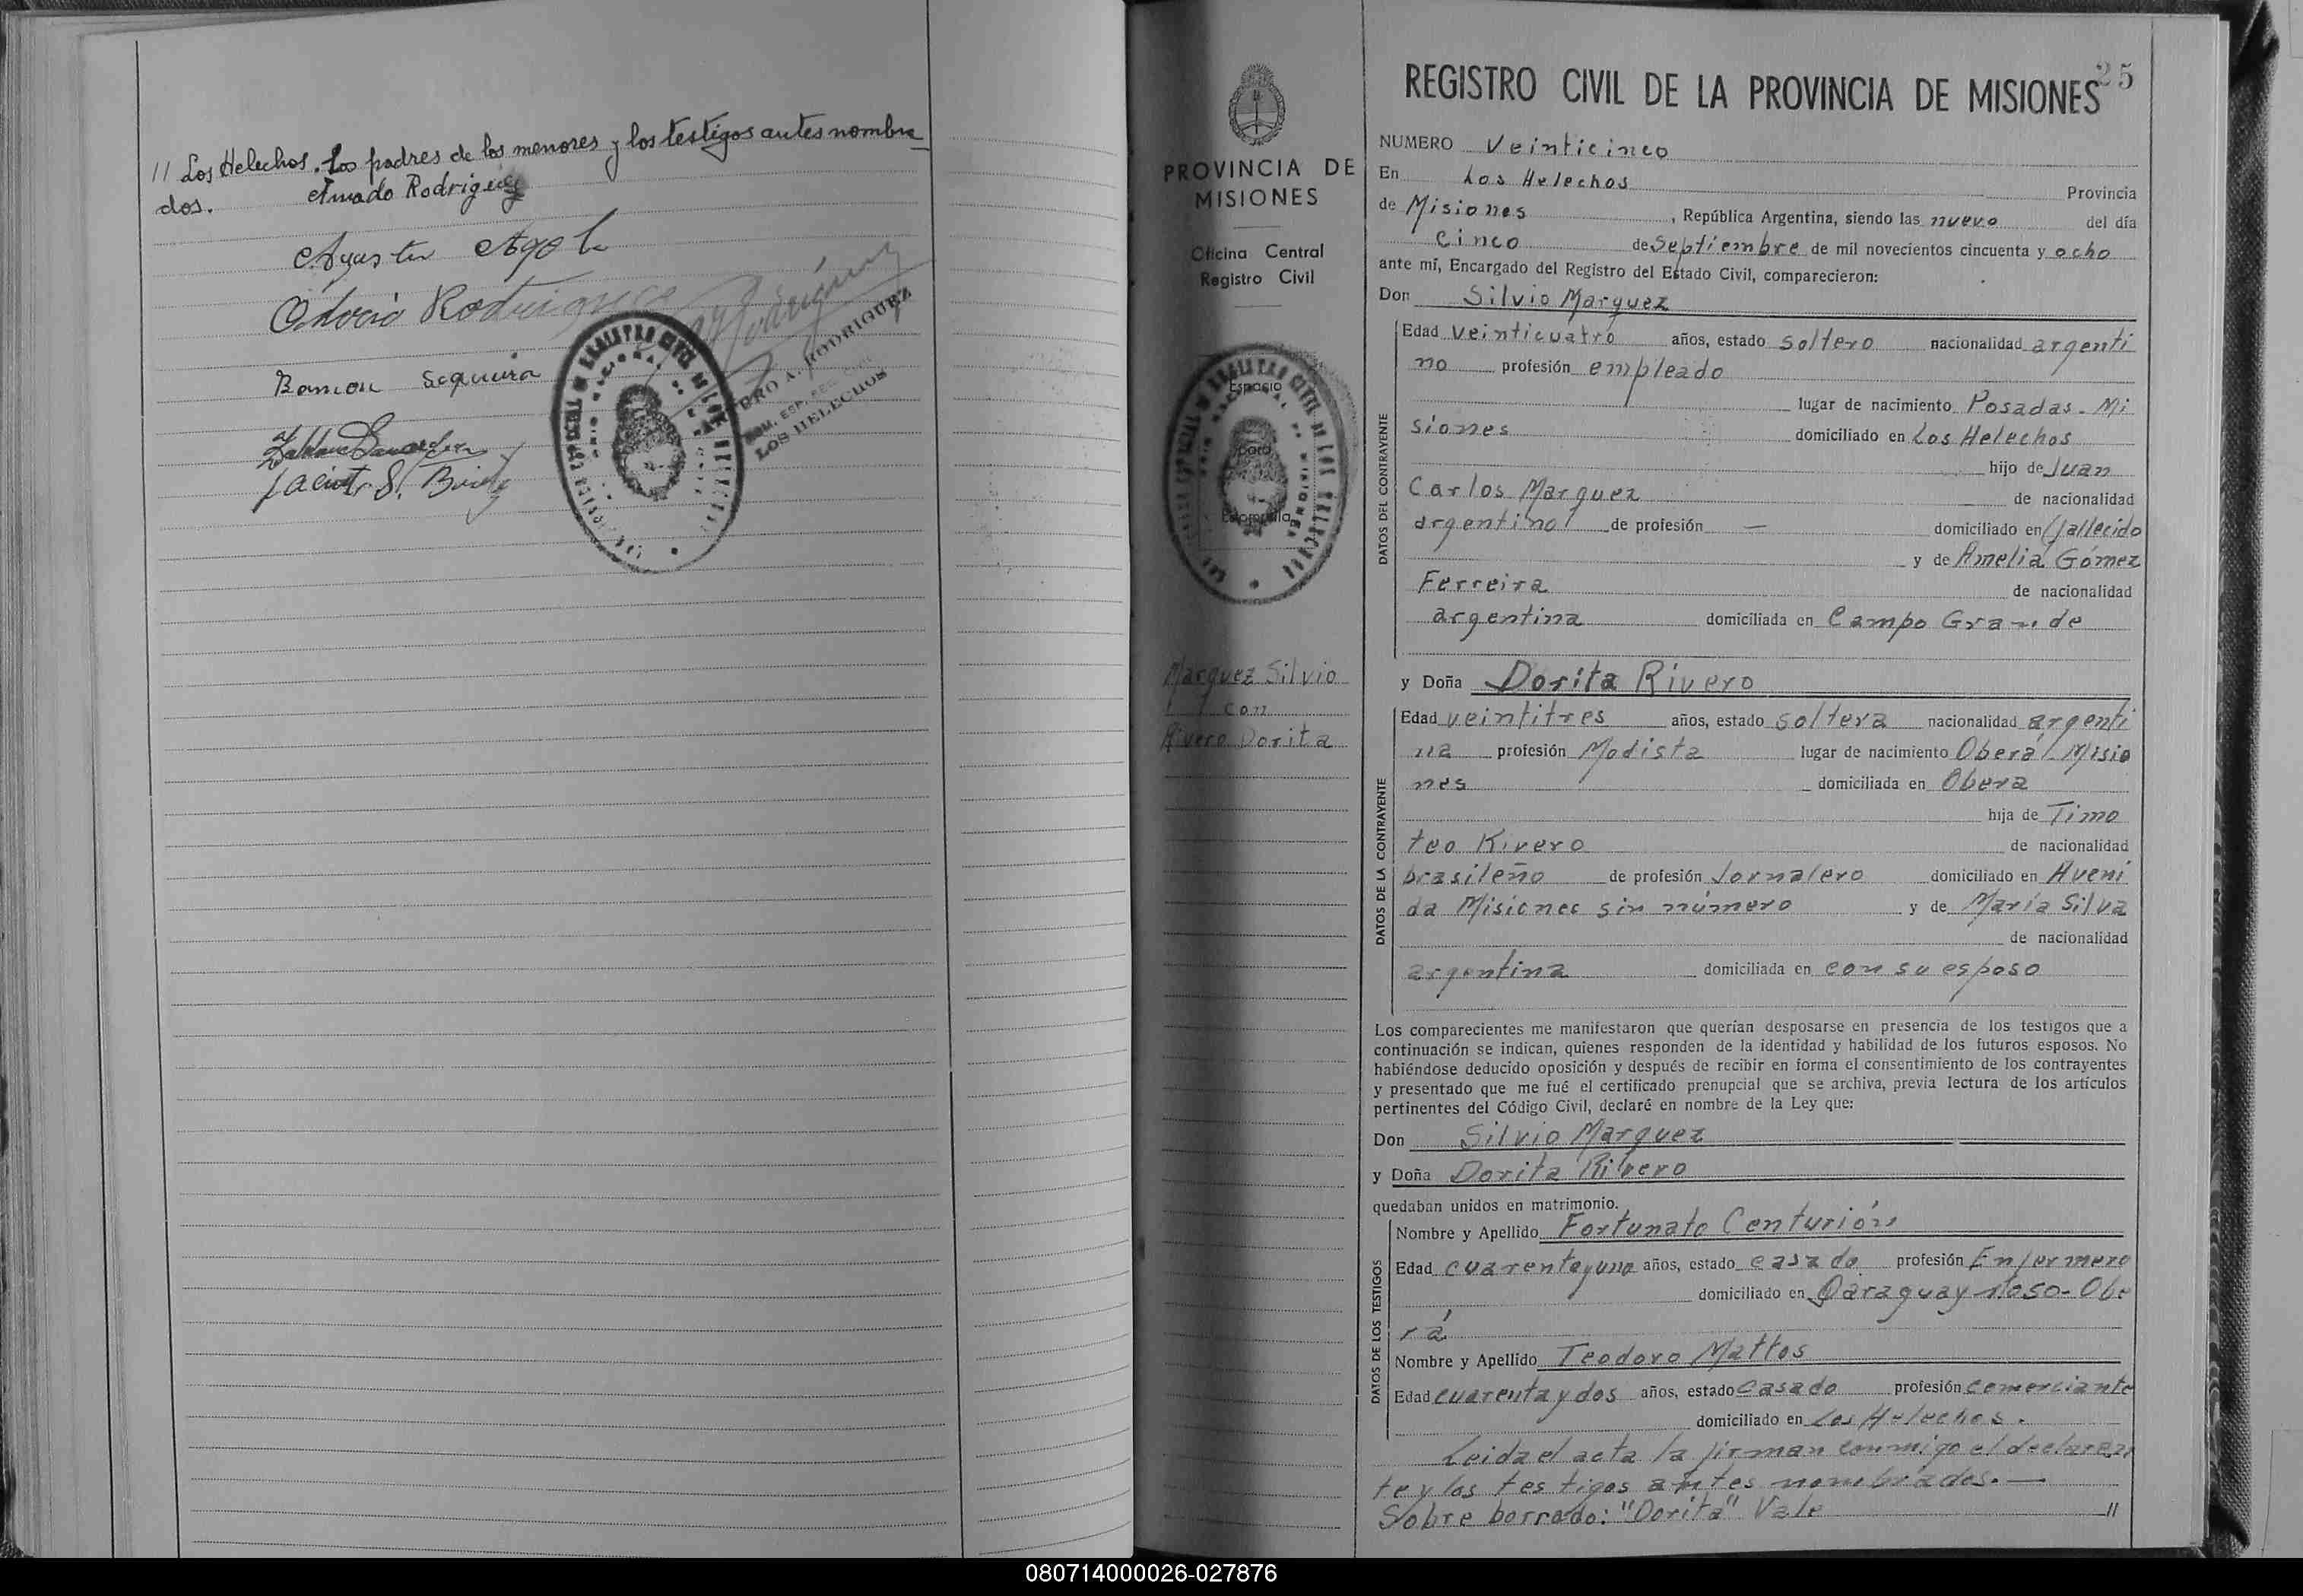 // Los Helechos. Los padres de los menores y los testigos antes nombra
dos. Amado Rodriguez
Agustin
Rodriguez
Ramon Sequeira
PEDRO A. RODRIGUEZ
LOS HELECHOS
PROVINCIA DE
MISIONES
Oficina Central
Registro Civil
Espacio
para
Estampilla
Marquez Silvio
con
Rivero Dorita
25
REGISTRO CIVIL DE LA PROVINCIA DE MISIONES
NUMERO Veinticinco
En Los Helechos Provincia
de Misiones, República Argentina, siendo las nueve del día
cinco de Septiembre de mil novecientos cincuenta y ocho
ante mí, Encargado del Registro del Estado Civil, comparecieron:
Don Silvio Marquez
DATOS DEL CONTRAYENTE
Edad veinticuatro años, estado soltero nacionalidad argenti
no profesión empleado
lugar de nacimiento Posadas - Mi
siones domiciliado en Los Helechos
hijo de Juan
Carlos Marquez de nacionalidad
argentino de profesión — domiciliado en (fallecido
y de Amelia Gómez
Ferreira de nacionalidad
argentina domiciliada en Campo Grande
y Doña Dorita Rivero
DATOS DE LA CONTRAYENTE
Edad veintitres años, estado soltera nacionalidad argenti
na profesión Modista lugar de nacimiento Oberá - Misio
nes domiciliada en Obera
hija de Timo
teo Rivero de nacionalidad
brasileño de profesión Jornalero domiciliado en Aveni
da Misiones sin número y de María Silva
de nacionalidad
argentina domiciliada en con su esposo
Los comparecientes me manifestaron que querían desposarse en presencia de los testigos que a
continuación se indican, quienes responden de la identidad y habilidad de los futuros esposos. No
habiéndose deducido oposición y después de recibir en forma el consentimiento de los contrayentes
y presentado que me fué el certificado prenupcial que se archiva, previa lectura de los artículos
pertinentes del Código Civil, declaré en nombre de la Ley que:
Don Silvio Marquez
y Doña Dorita Rivero
quedaban unidos en matrimonio.
DATOS DE LOS TESTIGOS
Nombre y Apellido Fortunato Centurión
Edad cuarenta y uno años, estado casado profesión Enfermero
domiciliado en Paraguay - Obe
rá
Nombre y Apellido Teodoro Mattos
Edad cuarenta y dos años, estado casado profesión comerciante
domiciliado en Los Helechos.
Leida el acta la firman conmigo el declaran
te y los testigos antes nombrados. —
Sobre borrado: "Dorita" Vale //
080714000026-027876